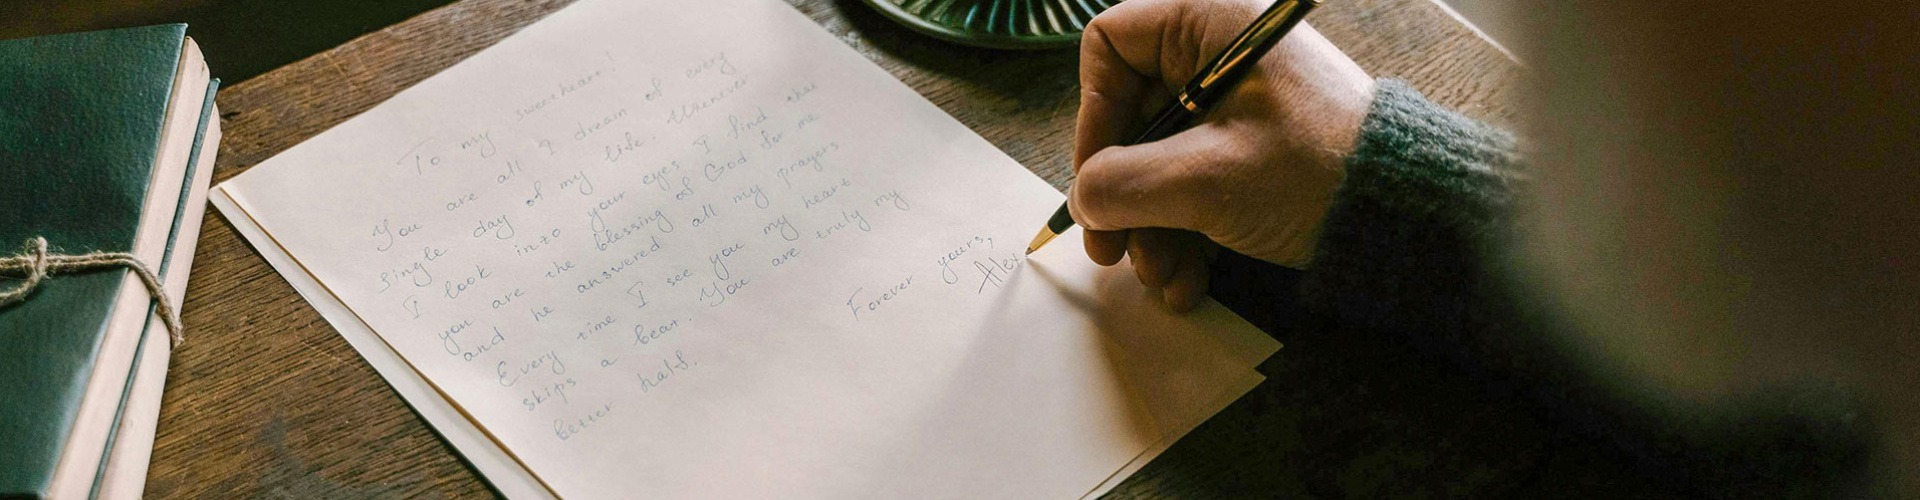 To my sweetheart!
You are all I dream of every
single day of my life. Whenever
I look into your eyes I find that
you are the blessing of God for me
and he answered all my prayers
Every time I see you my heart
skips a beat. You are truly my
better half.
Forever yours,
Alex